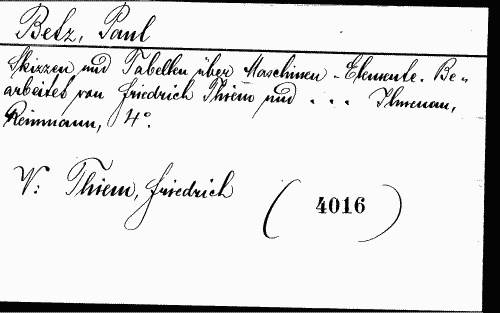 Betz, Paul
Skizzen und Tabellen über Maschinen-Elemente. Be-
arbeitet von Friedrich Thiem und . . . Ilmenau,
Reinmann, 4°.
V: Thiem, Friedrich
(4016)